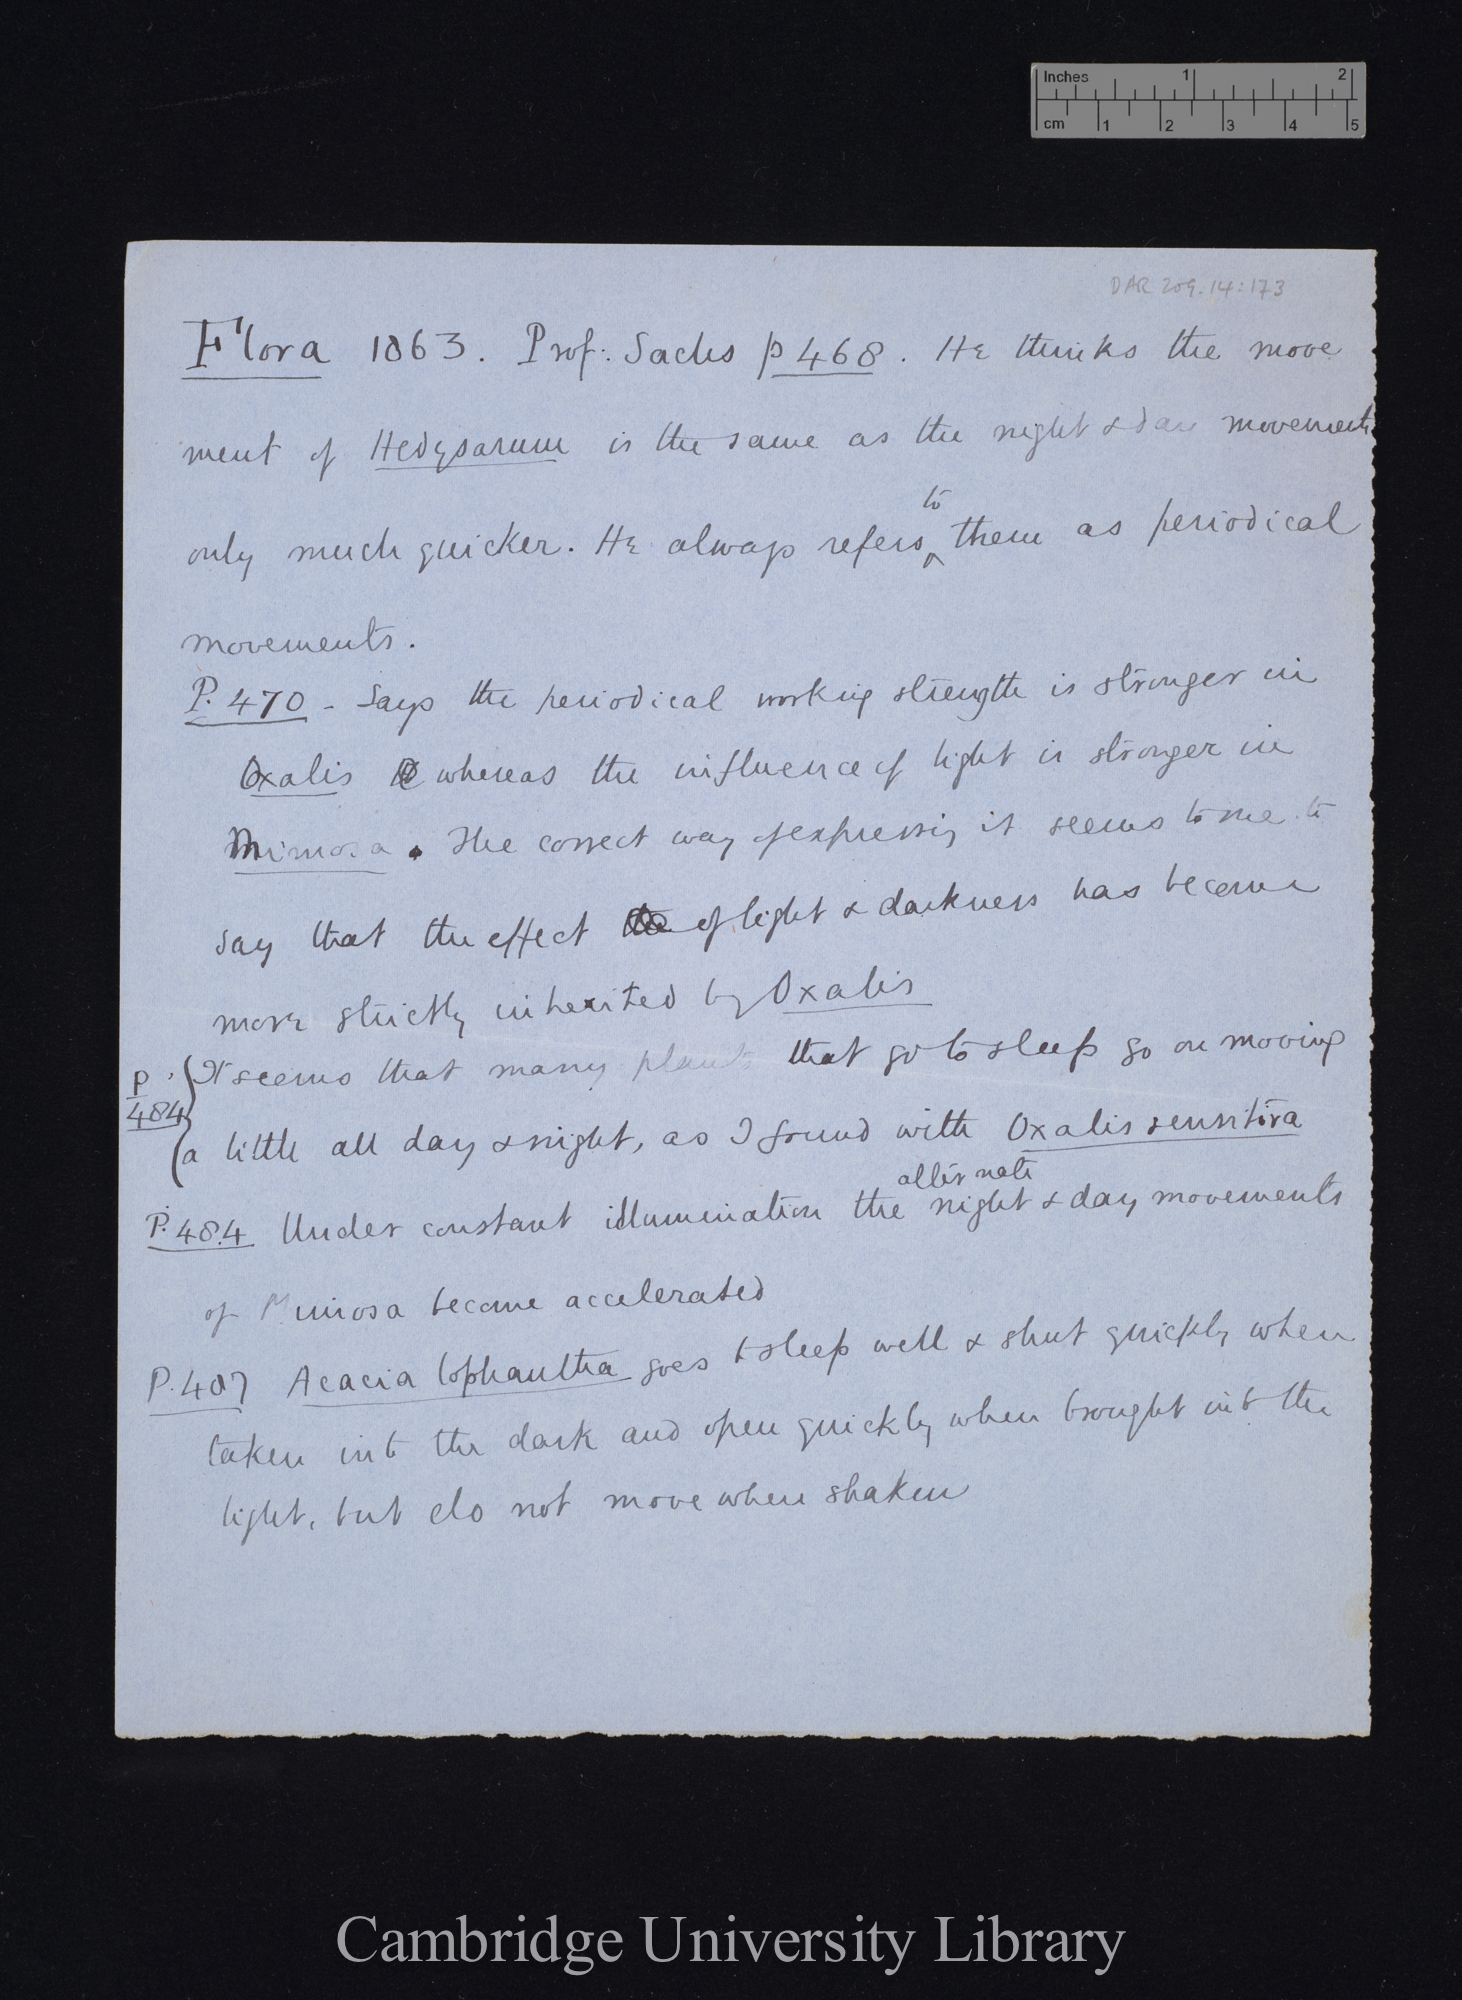 Inches 1 2
cm 1 2 3 4 5
DAR 209.14:173
Flora 1863. Prof: Sachs p 468. He thinks the move
ment of Hedysarum is the same as the night & day movements
only much quicker. He always refers to them as periodical
movements.
P. 470 - Says the periodical working strength is stronger in
Oxalis whereas the influence of light is stronger in
Mimosa. The correct way of expressing it seems to me to
say that the effect of light & darkness has become
more strictly inherited by Oxalis
p 484 It seems that many plants that go to sleep go on moving
a little all day & night, as I found with Oxalis sensitiva
P. 484 Under constant illumination the alternate night & day movements
of Mimosa become accelerated
P. 487 Acacia lophantha goes to sleep well & shut quickly when
taken into the dark and open quickly when brought into the
light, but do not move when shaken
Cambridge University Library